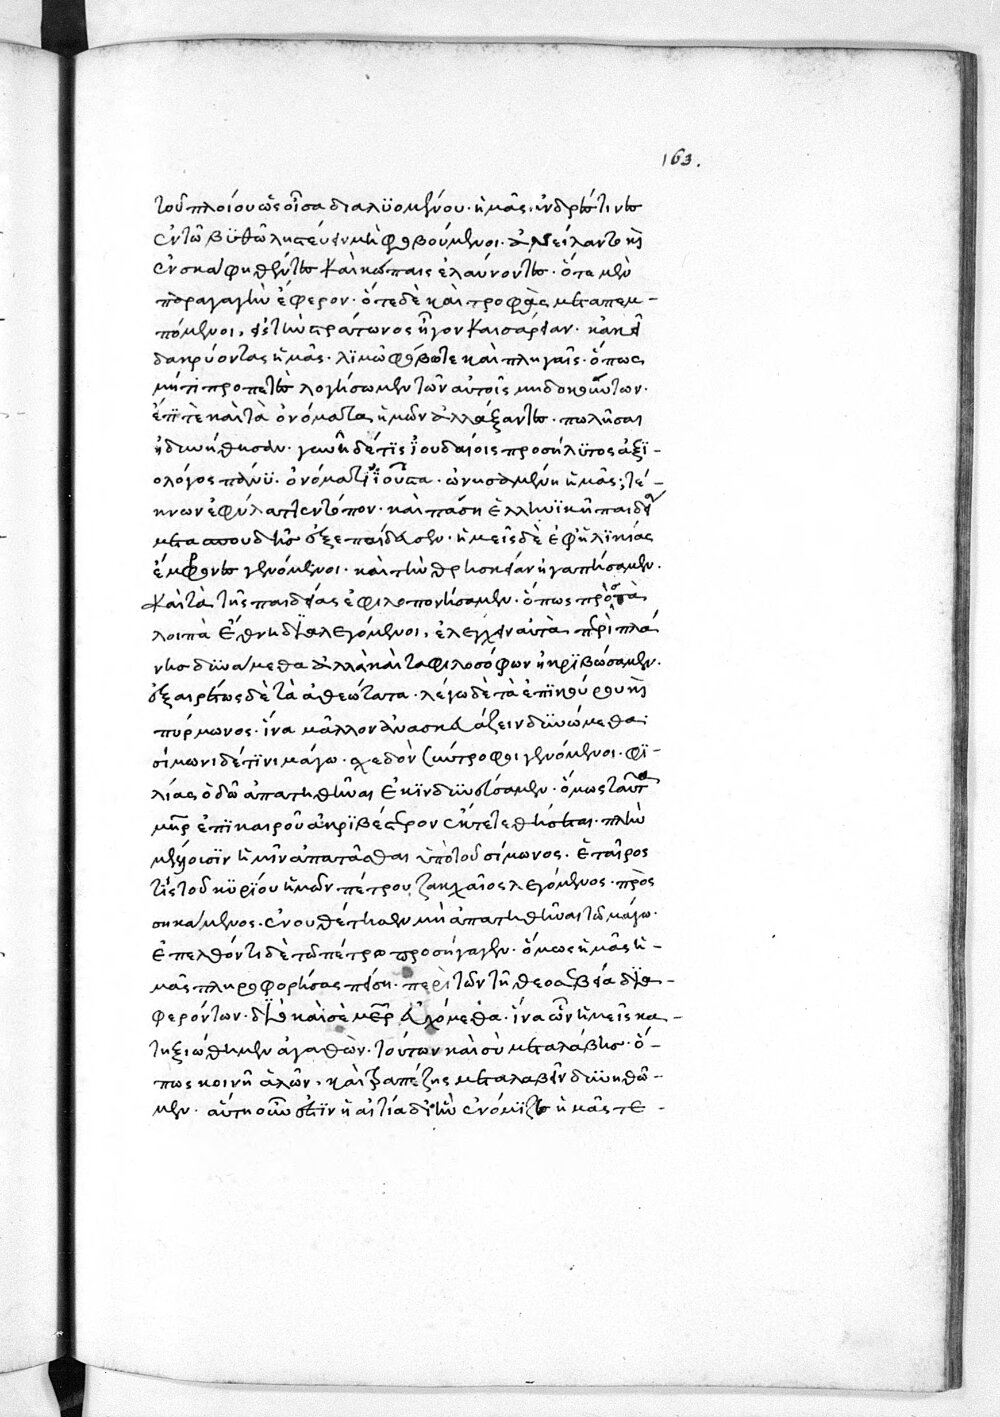 163.
τοῦ πλοίου ὡς οἶσθα διαλυομένου· ἡμᾶς ἄνδρές τινες
ἐν τῷ βυθῷ λῃστεύειν μὴ φοβούμενοι· ἀνείλαντο καὶ
ἐν σκάφει θέντες καὶ κώπαις ἐλαύνοντες· ὁτὲ μὲν
παραγαγεῖν ἔφερον· ὁτὲ δὲ καὶ τροφὰς μεταπεμ-
πόμενοι, εἰς τὴν στράτωνος ἦγον καισάρειαν· κἀκεῖ
δακρύοντας ἡμᾶς· λιμῷ φόβῳ τε καὶ πληγαῖς· ὅπως
μή τι προπετὲς λογήσωμεν τῶν αὐτοῖς μὴ δοκούντων·
ἔτι τε καὶ τὰ ὀνόματα ἡμῶν ἀλλάξαντες· πωλῆσαι
ἠδυνήθησαν· γυνὴ δέ τις ἰουδαίοις προσήλυτος ἀξι-
ολόγος πάνυ· ὀνόματι ἰοῦστα· ὠνησαμένη ἡμᾶς; τέ-
κνων ἐφύλαττεν τόπον· καὶ πάσῃ ἑλληνικῇ παιδείᾳ
μετὰ σπουδῆς ἐξεπαίδευσεν· ἡμεῖς δὲ ἐφ' ἡλικίας
ἔμφρονες γενόμενοι· καὶ τὴν θρησκείαν ἠγαπήσαμεν·
καὶ τὰ τῆς παιδείας ἐφιλοπονήσαμεν· ὅπως πρὸς τὰ
λοιπὰ ἔθνη διαλεγόμενοι, ἐλέγχειν αὐτὰ περὶ πλά
νης δυνάμεθα ἀλλὰ καὶ τὰ φιλοσόφων ἠκριβώσαμεν·
ἐξαιρέτως δὲ τὰ ἀθεώτατα· λέγω δὲ τὰ ἐπικούρου καὶ
πύρρωνος· ἵνα μᾶλλον ἀνασκευάζειν δυνώμεθα·
σίμωνι δέ τινι μάγῳ· σχεδὸν σύντροφοι γενόμενοι· φι-
λίας ὁδῷ ἀπατηθῆναι ἐκινδυνεύσαμεν· ὅμως ταῦτα
μὲν ἐπὶ καιροῦ ἀκριβέστερον ἐκτεθήσεται· πλὴν
ἡμῖν ἀπατᾶσθαι ὑπὸ τοῦ σίμωνος· ἑταῖρος
τίς τοῦ κυρίου ἡμῶν πέτρου ζακχαῖος λεγόμενος· πρὸς
ἐνουθέτησεν μὴ ἀπατηθῆναι τῷ μάγῳ·
ἐπελθόντι δὲ τῷ πέτρῳ προσήγαγεν· ὅμως ἡμᾶς ἡ-
μᾶς πληροφορήσας πείσῃ· περὶ τῶν τῇ θεοσεβείᾳ δια-
φερόντων· διὸ καὶ σὲ μῆτερ εὐχόμεθα· ἵνα ὧν ἡμεῖς κα-
τηξιώθημεν ἀγαθῶν· τούτων καὶ σὺ μεταλάβῃς· ὅ-
πως κοινῇ ἁλῶν, καὶ τραπέζης μεταλαβεῖν δυνηθῶ-
μεν· αὕτη οὖν ἐστὶν ἡ αἰτία δι' ἣν ἐνόμιζες ἡμᾶς τε-